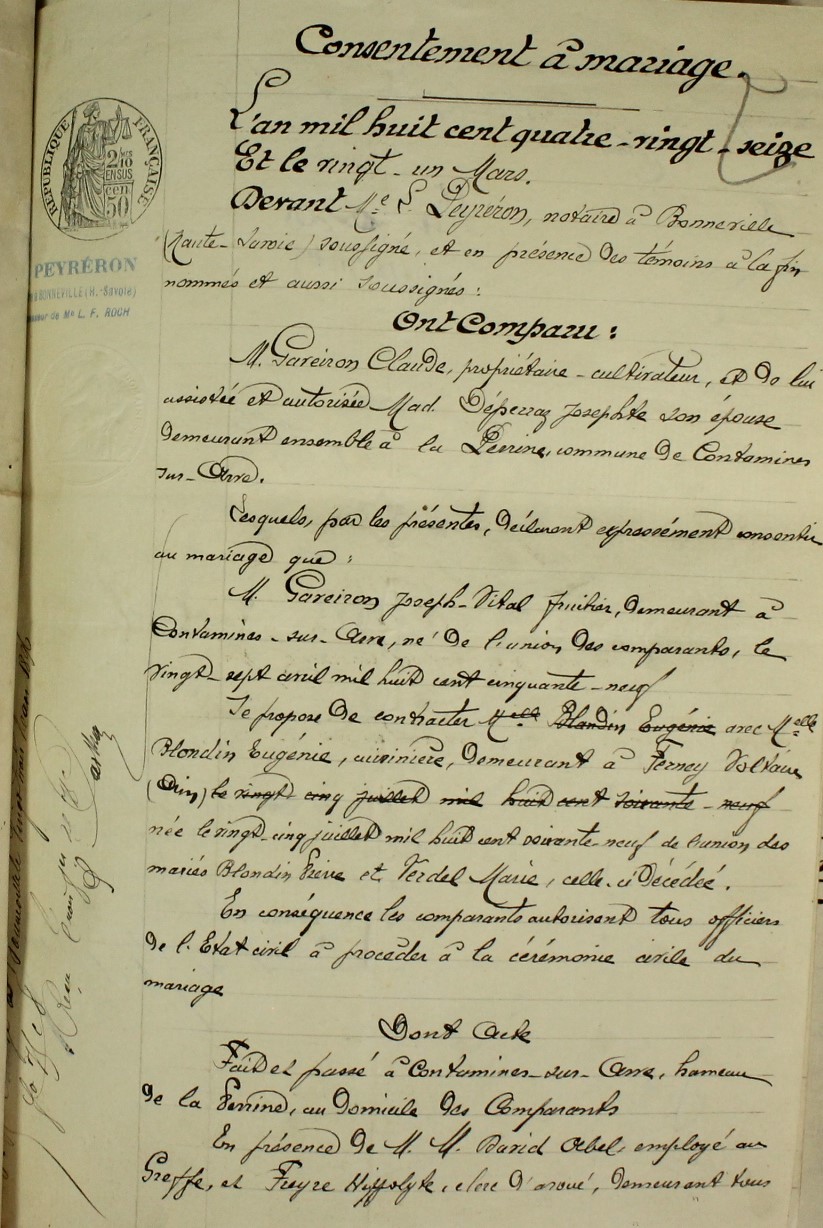 Consentement à mariage.
L'an mil huit cent quatre-vingt-seize
Et le vingt-un Mars.
Devant Me L. Peyréron, notaire à Bonneville
(Haute-Savoie) soussigné, et en présence des témoins à la fin
nommés et aussi soussignés :
Ont Comparu :
M. Gareiron Claude, propriétaire-cultivateur, et de lui
assistée et autorisée Mad. Déperraz Josephte son épouse
demeurant ensemble à la Perrine, commune de Contamines
sur-Arve.
Lesquels, par les présentes, déclarent expressément consentir
au mariage que :
M. Gareiron Joseph-Vital fruitier, demeurant à
Contamines-sur-Arve, né de l'union des comparants, le
vingt-sept avril mil huit cent cinquante-neuf
Se propose de contracter Melle Blandin Eugénie avec Melle
Blondin Eugénie, cuisinière, demeurant à Ferney Voltaire
(Ain) le vingt cinq juillet mil huit cent soixante-neuf
née le vingt-cinq juillet mil huit cent soixante-neuf de l'union des
mariés Blondin Pierre et Verdel Marie, celle-ci décédée.
En conséquence les comparants autorisent tous officiers
de l'Etat civil à procéder à la cérémonie civile du
mariage
Dont Acte
Fait et passé à Contamines-sur-Arve, hameau
de la Perrine, au domicile des Comparants
En présence de M. M. David Abel, employé au
Greffe, et Freyre Hippolyte, clerc d'avoué, demeurant tous
RÉPUBLIQUE FRANÇAISE
2 10es
EN SUS
50 cen
PEYRÉRON
BONNEVILLE (H.-Savoie)
de Me L. F. ROCH